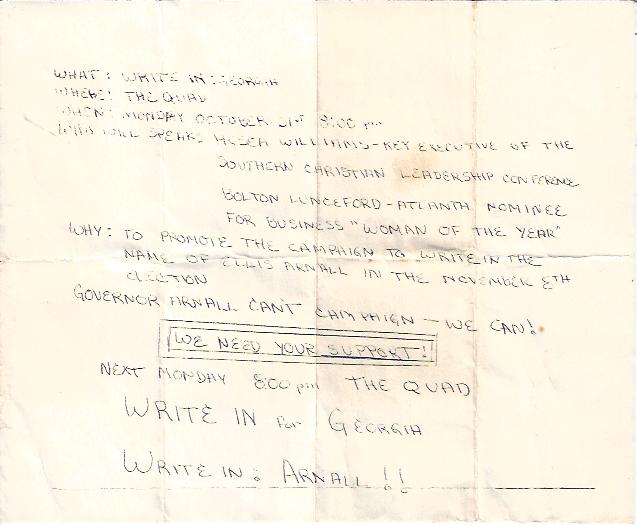 WHAT: WRITE IN: GEORGIA
WHERE: THE QUAD
WHEN: MONDAY OCTOBER 31ST 8:00 pm
WHO WILL SPEAK: HOSEA WILLIAMS-KEY EXECUTIVE OF THE
SOUTHERN CHRISTIAN LEADERSHIP CONFERENCE
BOLTON LUNCEFORD-ATLANTA NOMINEE
FOR BUSINESS "WOMAN OF THE YEAR"
WHY: TO PROMOTE THE CAMPAIGN TO WRITE IN THE
NAME OF ELLIS ARNALL IN THE NOVEMBER 8TH
ELECTION
GOVERNOR ARNALL CANT CAMPAIGN - WE CAN!
WE NEED YOUR SUPPORT!
NEXT MONDAY 8:00 pm THE QUAD
WRITE IN For GEORGIA
WRITE IN: ARNALL!!